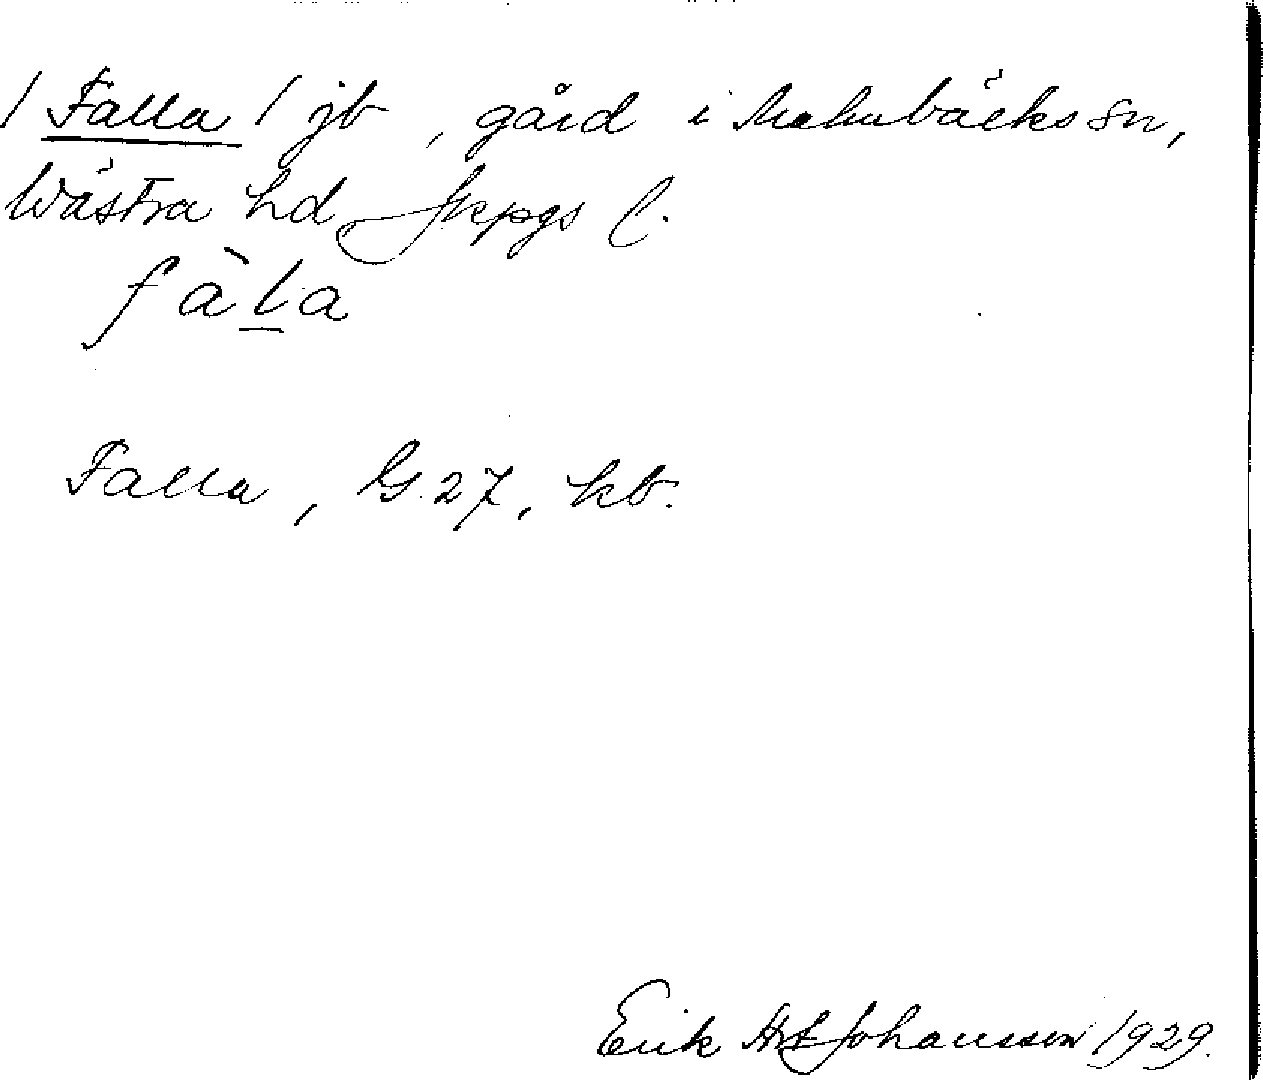 / Falla / jb, gård i Malmbäcks sn,
Västra hd Jkpgs l.
fàla
Falla, G. 27, kb.
Erik Johansson 1929.